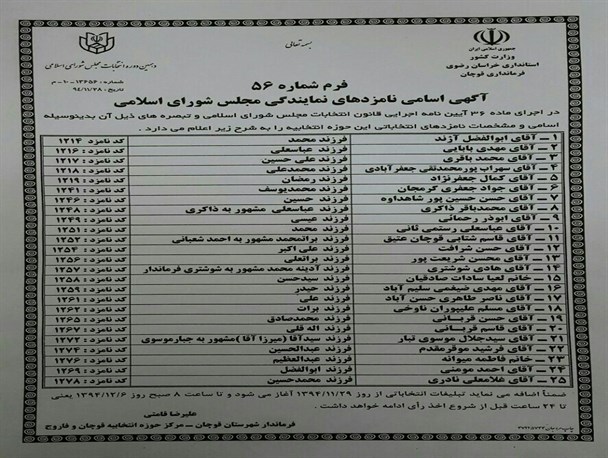 بسمه تعالی
جمهوری اسلامی ایران
وزارت کشور
استانداری خراسان رضوی
فرمانداری قوچان
دهمین دوره انتخابات مجلس شورای اسلامی
شماره : ۱۳۶۵۶-۱۰-م
تاریخ : ۹۴/۱۱/۲۸
فرم شماره ۵۶
آگهی اسامی نامزدهای نمایندگی مجلس شورای اسلامی
در اجرای ماده ۳۶ آیین نامه اجرایی قانون انتخابات مجلس شورای اسلامی و تبصره های ذیل آن بدینوسیله
اسامی و مشخصات نامزدهای انتخاباتی این حوزه انتخابیه را به شرح زیر اعلام می دارد .
۱ – آقای ابوالفضل آژند فرزند محمد کد نامزد : ۱۲۱۴
۲ – آقای مهدی بابایی فرزند عباسعلی کد نامزد : ۱۲۱۶
۳ – آقای محمد باقری فرزند علی حسین کد نامزد : ۱۲۱۷
۴ – آقای سهراب پورمحمدتقی جعفرآبادی فرزند محمدعلی کد نامزد : ۱۲۱۸
۵ – آقای کمال جعفرنژاد فرزند رمضان کد نامزد : ۱۲۱۹
۶ – آقای جواد جعفری گرمجان فرزند محمدیوسف کد نامزد : ۱۲۴۱
۷ – آقای حسن حسین پور شاهداوه فرزند حسین کد نامزد : ۱۲۴۶
۸ – آقای محمدباقر ذاکری فرزند عباسعلی مشهور به ذاکری کد نامزد : ۱۲۴۸
۹ – آقای ابوذر رحمائی فرزند عیسی کد نامزد : ۱۲۴۹
۱۰ – آقای عباسعلی رستمی ثانی فرزند محمد کد نامزد : ۱۲۵۱
۱۱ – آقای قاسم شتابی قوچان عتیق فرزند براتمحمد مشهور به احمد شعبانی کد نامزد : ۱۲۵۲
۱۲ – آقای حسن شرافت فرزند علی اکبر کد نامزد : ۱۲۵۴
۱۳ – آقای محسن شریعت پور فرزند براتعلی کد نامزد : ۱۲۵۶
۱۴ – آقای هادی شوشتری فرزند آدینه محمد مشهور به شوشتری فرماندار کد نامزد : ۱۲۵۷
۱۵ – خانم لعیا سادات صادقیان فرزند سیدحسن کد نامزد : ۱۲۵۸
۱۶ – آقای مهدی ضیغمی سلیم آباد فرزند حیدر کد نامزد : ۱۲۵۹
۱۷ – آقای ناصر طاهری حسن آباد فرزند علی کد نامزد : ۱۲۶۱
۱۸ – آقای مسلم علیپوریان ناوخی فرزند برات کد نامزد : ۱۲۶۲
۱۹ – آقای حسن قربانی فرزند محمدصادق کد نامزد : ۱۲۶۵
۲۰ – آقای قاسم قربانی فرزند اله قلی کد نامزد : ۱۲۶۷
۲۱ – آقای سیدجلال موسوی تبار فرزند سیدآقا (میرزا آقا) مشهور به جبارموسوی کد نامزد : ۱۲۷۲
۲۲ – آقای فرشید موقرمقدم فرزند عبدالحسین کد نامزد : ۱۲۷۴
۲۳ – خانم فاطمه میوانه فرزند عبدالعظیم کد نامزد : ۱۲۷۶
۲۴ – آقای احمد مومنی فرزند ابوالفضل کد نامزد : ۱۲۶۹
۲۵ – آقای غلامعلی نادری فرزند محمدحسین کد نامزد : ۱۲۷۸
ضمناً اضافه می نماید تبلیغات انتخاباتی از روز ۱۳۹۴/۱۱/۲۹ آغاز می شود و تا ساعت ۸ صبح روز ۱۳۹۴/۱۲/۶ یعنی
تا ۲۴ ساعت قبل از شروع اخذ رأی ادامه خواهد داشت .
علیرضا قامتی
فرماندار شهرستان قوچان – مرکز حوزه انتخابیه قوچان و فاروج